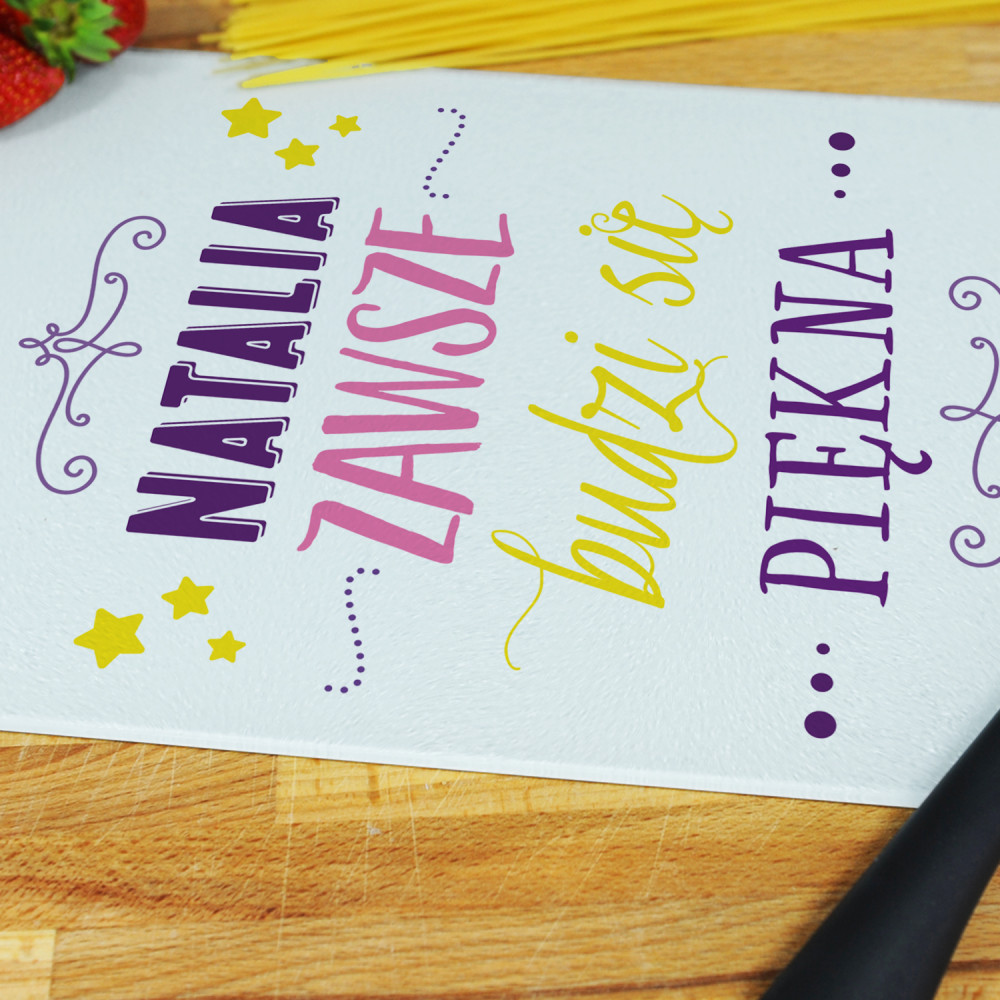 NATALIA
ZAWSZE
budzi się
PIĘKNA